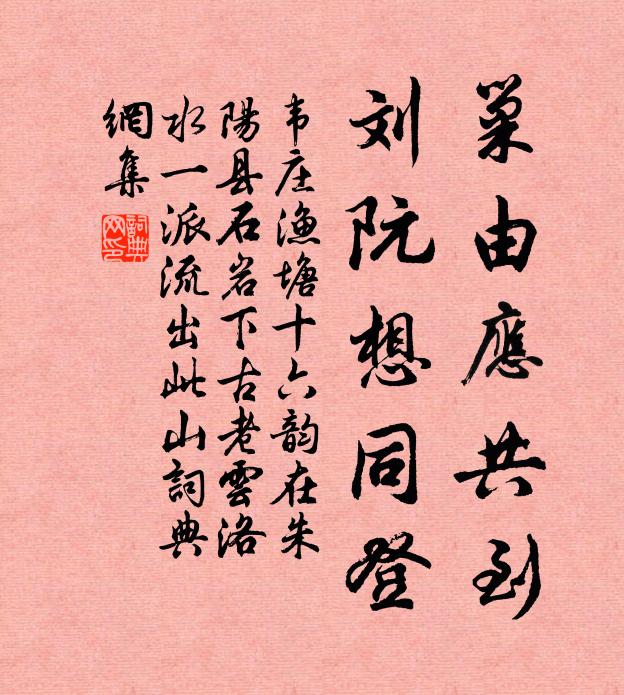 巢由應共到
刘阮想同登
韦庄漁塘十六韵在朱
陽县石岩下古老雲洛
水一派流出此山詞典
網集
詞典
网印